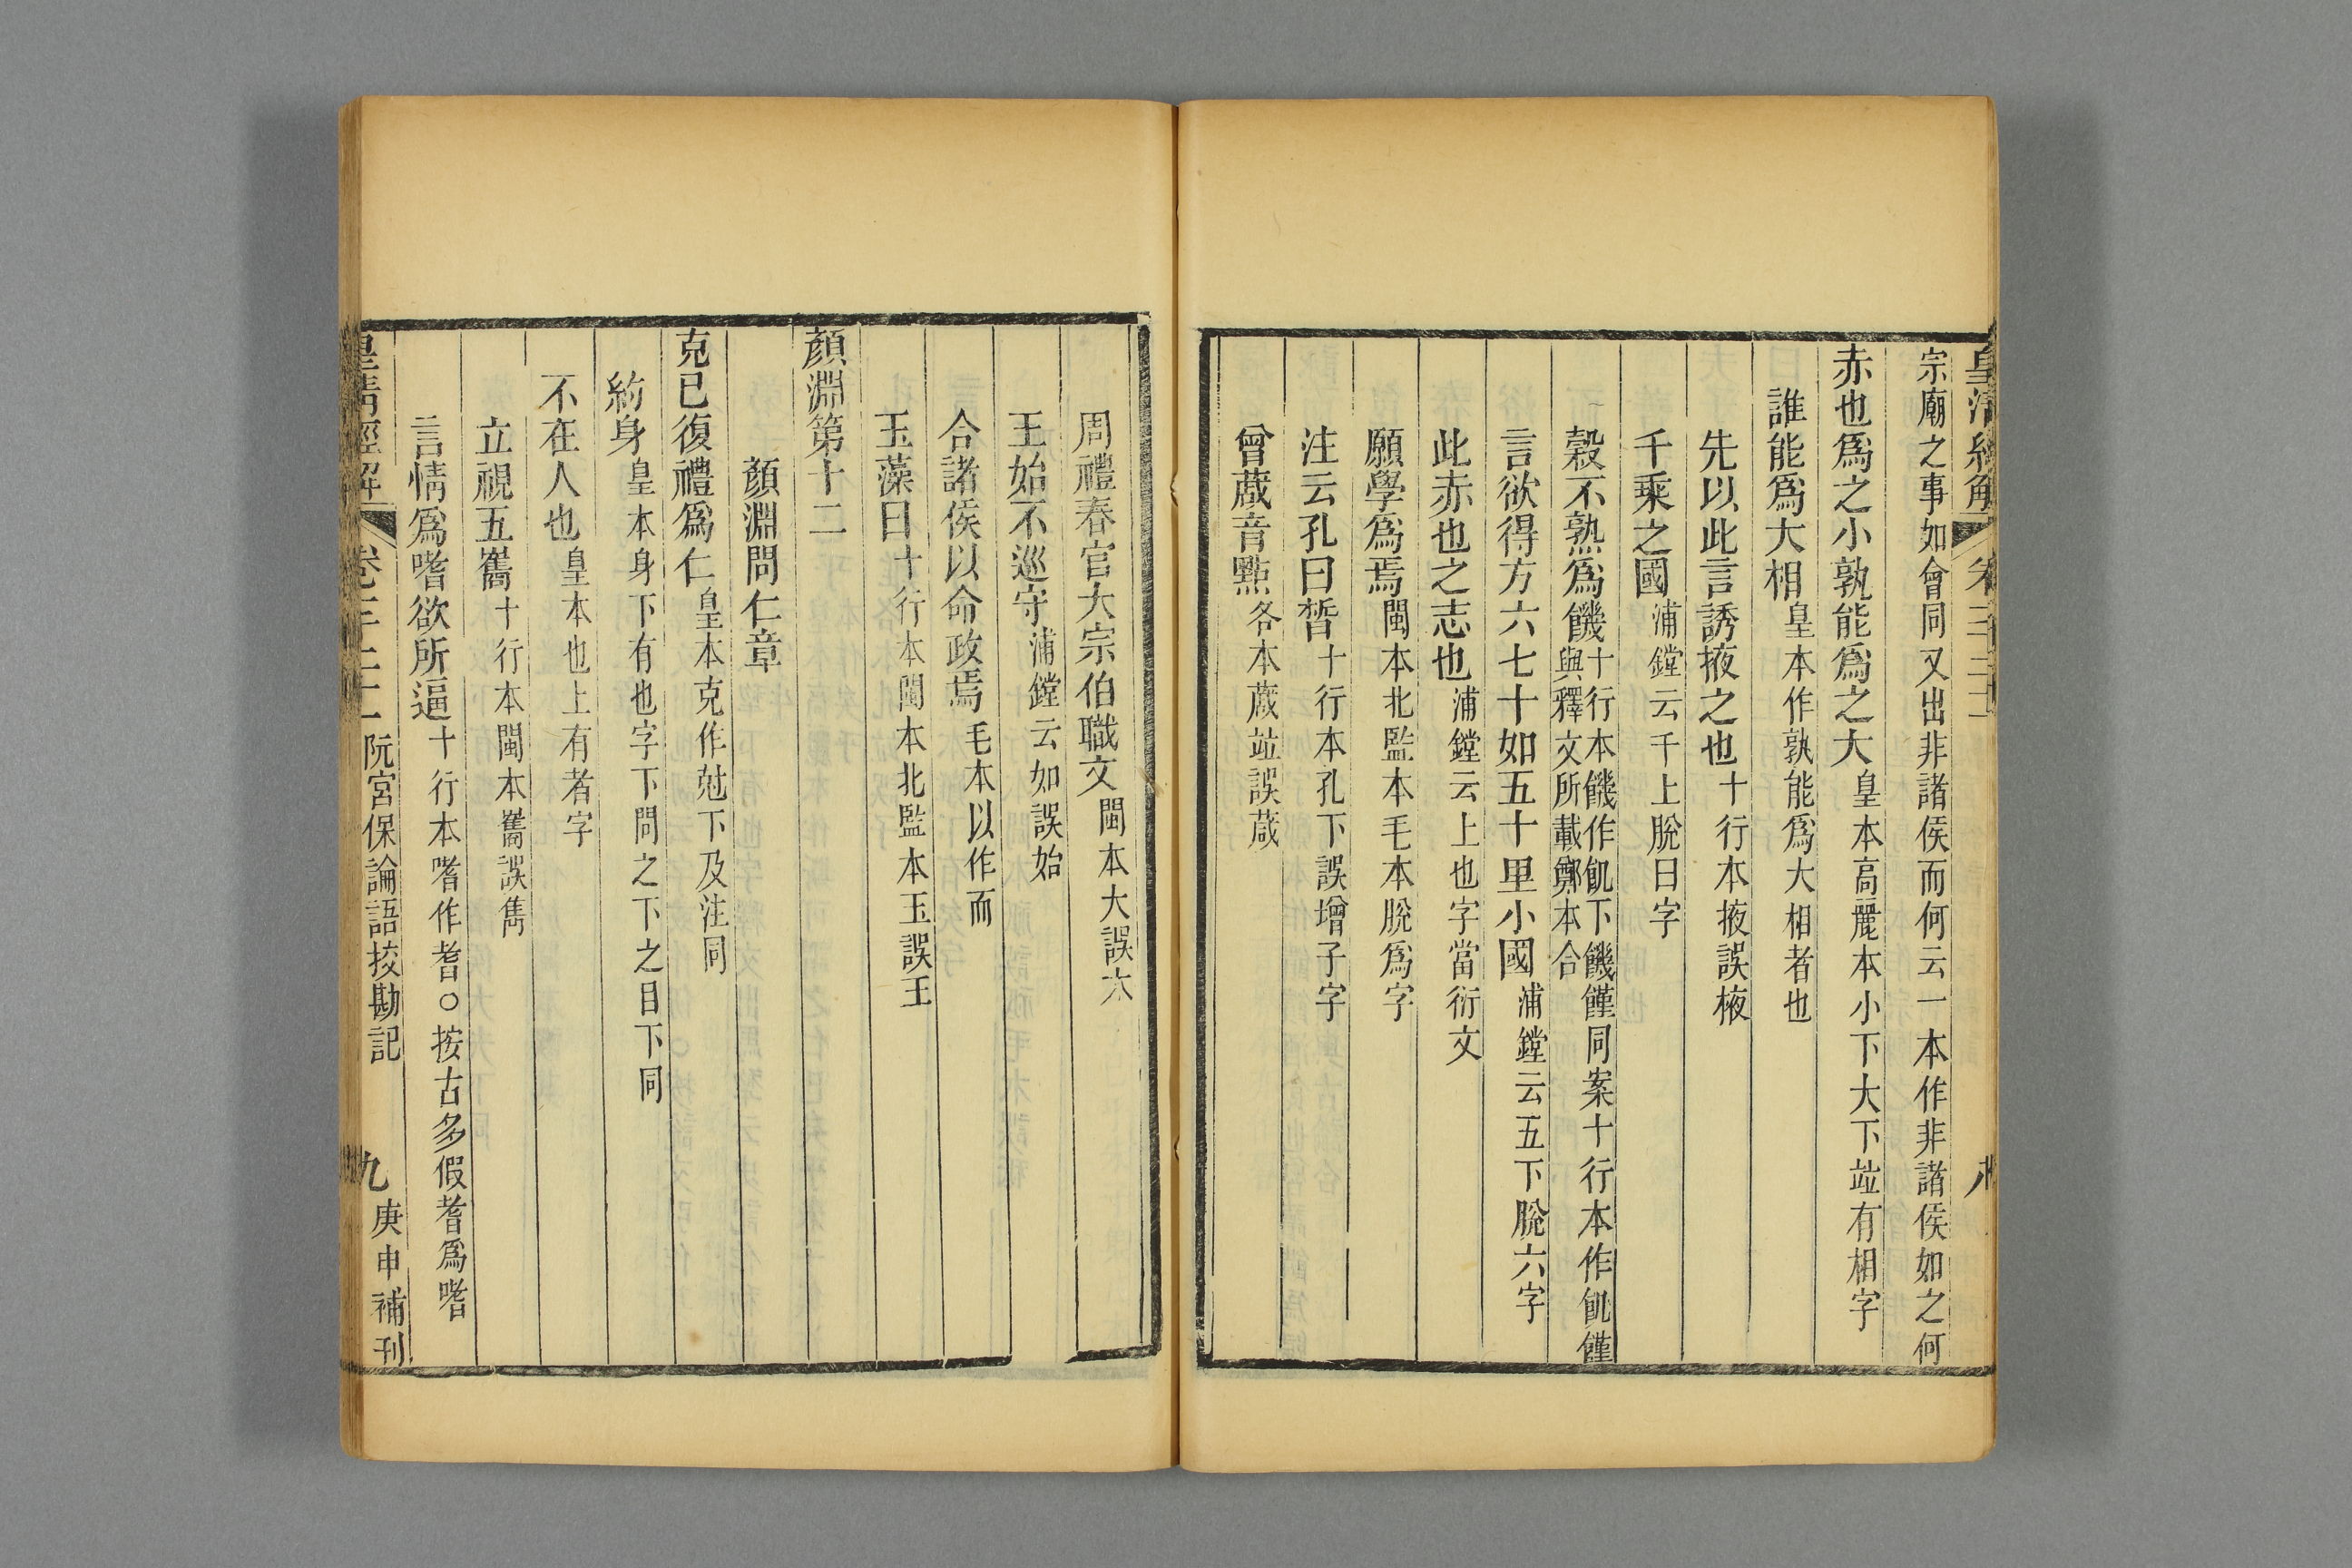 皇清經解 卷千二十一 八
宗廟之事如會同又出非諸侯而何云一本作非諸侯如之何
赤也爲之小孰能爲之大皇本高麗本小下大下竝有相字
誰能爲大相皇本作孰能爲大相者也
先以此言誘掖之也十行本掖誤棭
千乘之國浦鏜云千上脫曰字
穀不熟爲饑十行本饑作飢下饑饉同案十行本作飢饉
與釋文所載鄭本合
言欲得方六七十如五十里小國浦鏜云五下脫六字
此赤也之志也浦鏜云上也字當衍文
願學爲焉閩本北監本毛本脫爲字
注云孔曰晳十行本孔下誤增子字
曾蒧音點各本蒧竝誤葴
周禮春官大宗伯職文閩本大誤太
王始不巡守浦鏜云如誤始
合諸侯以命政焉毛本以作而
玉藻曰十行本閩本北監本玉誤王
顏淵第十二
顏淵問仁章
克己復禮爲仁皇本克作尅下及注同
約身皇本身下有也字下問之下之目下同
不在人也皇本也上有者字
立視五巂十行本閩本巂誤雋
言情爲嗜欲所逼十行本嗜作耆○按古多假耆爲嗜
皇清經解 卷千二十一 阮宮保論語挍勘記 九 庚申補刊